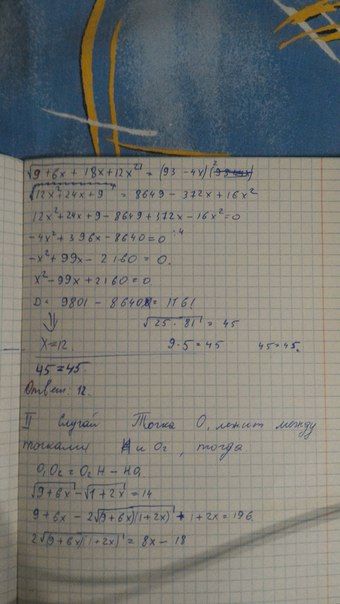 √(9+6x+18x+12x²) = (93-4x)²
√(12x²+24x+9) = 8649-372x+16x²
12x²+24x+9-8649+372x-16x²=0
-4x²+396x-8640=0 :4
-x²+99x-2160=0.
x²-99x+2160=0
D= 9801-8640=1161
⇓ √(25·81)=45
x=12. 9·5=45 45=45.
45=45.
Ответ: 12.
II случай Точка O, лежит между
точками H и O₂, тогда
O₁O₂=O₂H-HO₁
√(9+6x)-√(1+2x)=14
9+6x-2√((9+6x)(1+2x))+1+2x=196
2√((9+6x)(1+2x))=8x-18